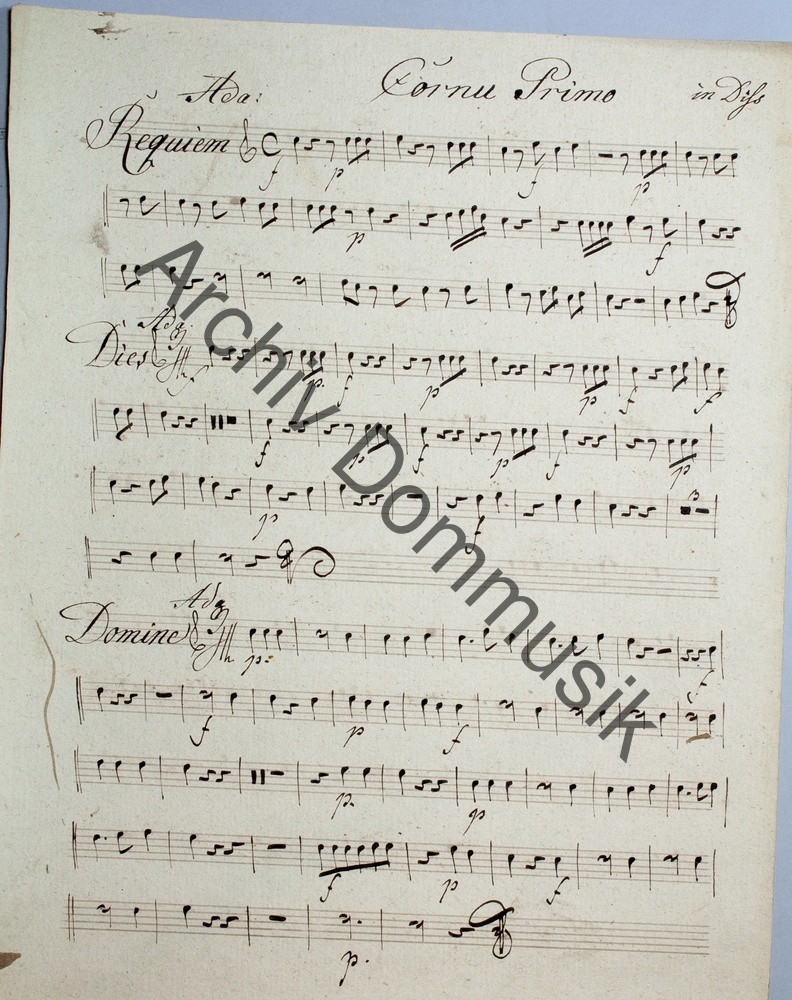 Cornu Primo
in Diss
Ada:
Requiem
f p f p
p f
Adg
Dies
f p. f p p f f
f p f p f p
p f 3
Adg
Domine
p. f
f p f
p. p
f p f
p.
Archiv Dommusik